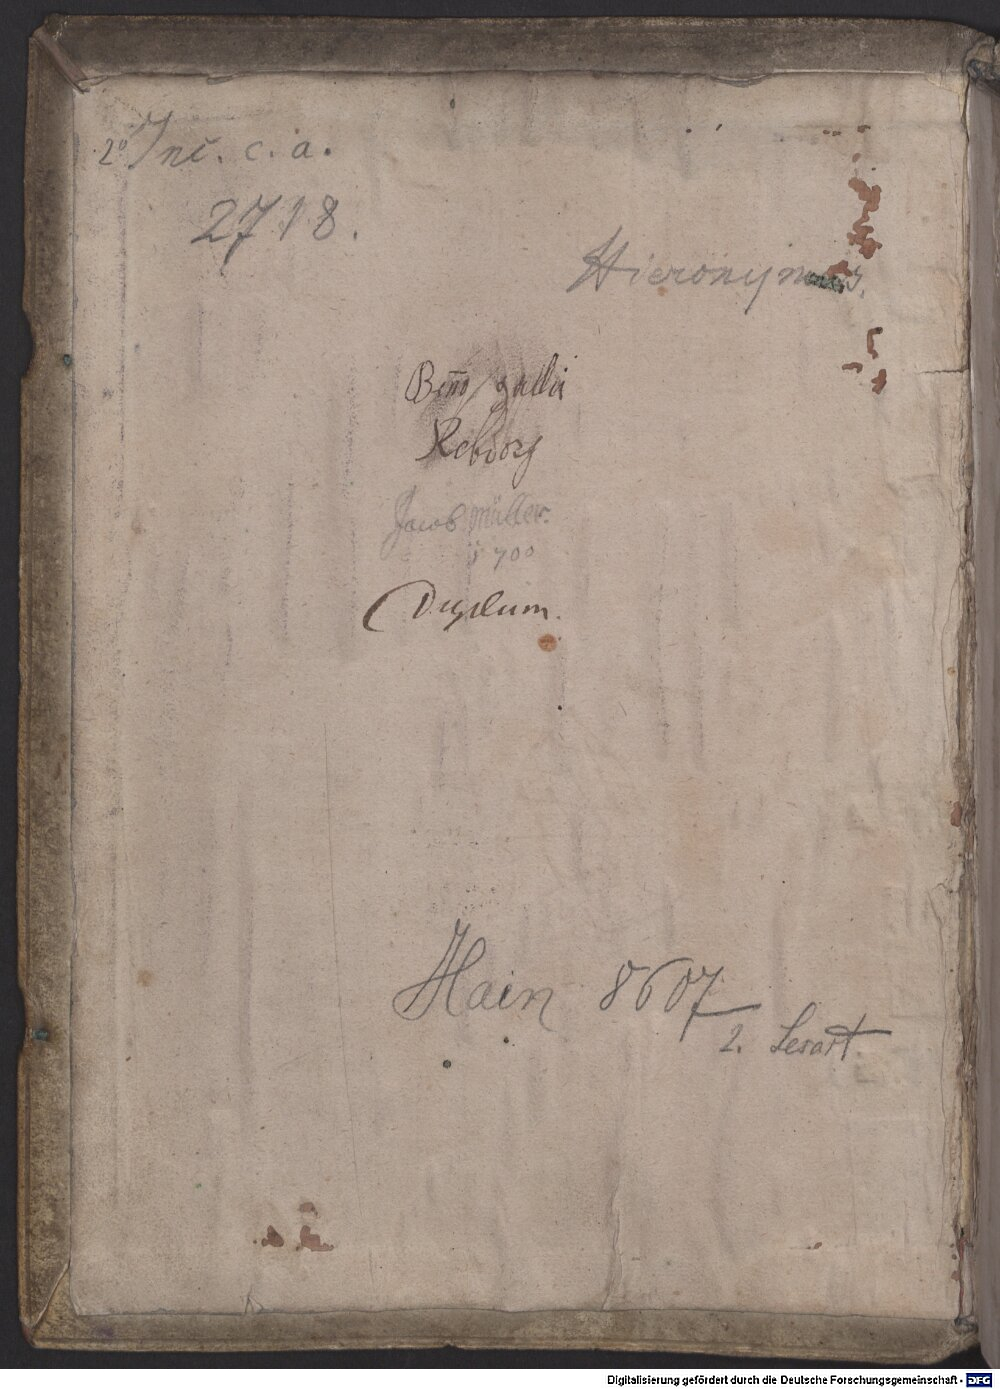 2° Inc. c. a.
2718.
Hieronymus.
Jacob Müller.
1700
Duplum.
Hain 8607
2. Lesart
Digitalisierung gefördert durch die Deutsche Forschungsgemeinschaft - DFG